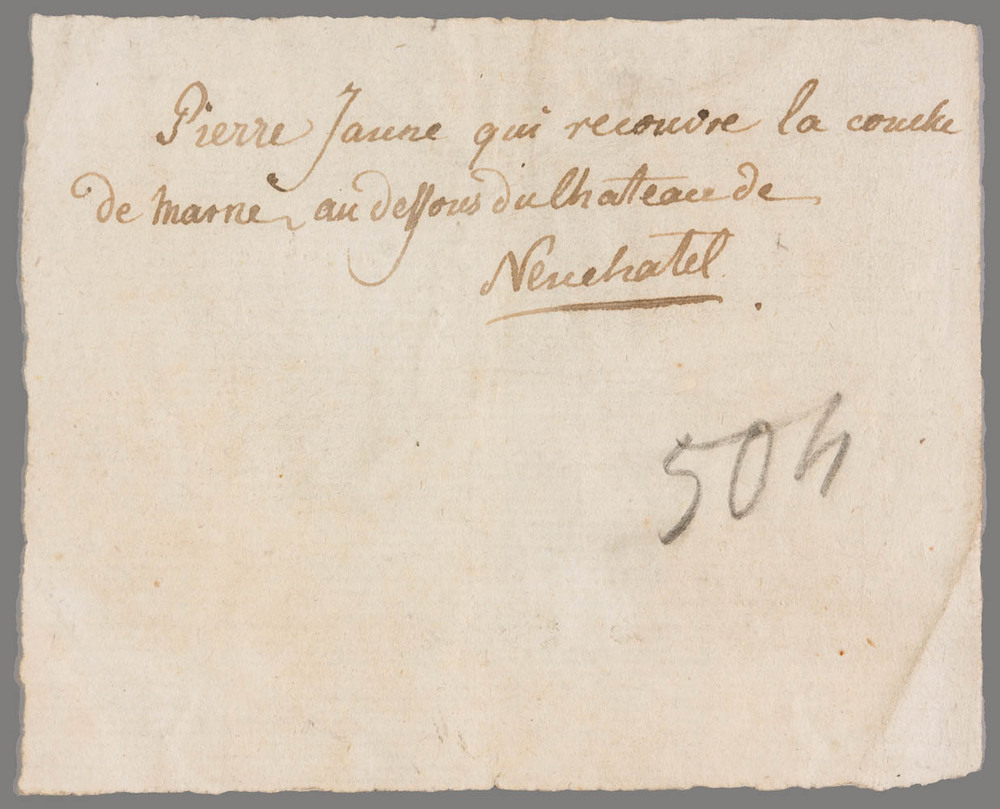 Pierre Jaune qui recouvre la couche
de marne, au dessous du Chateau de
Neuchatel.
504